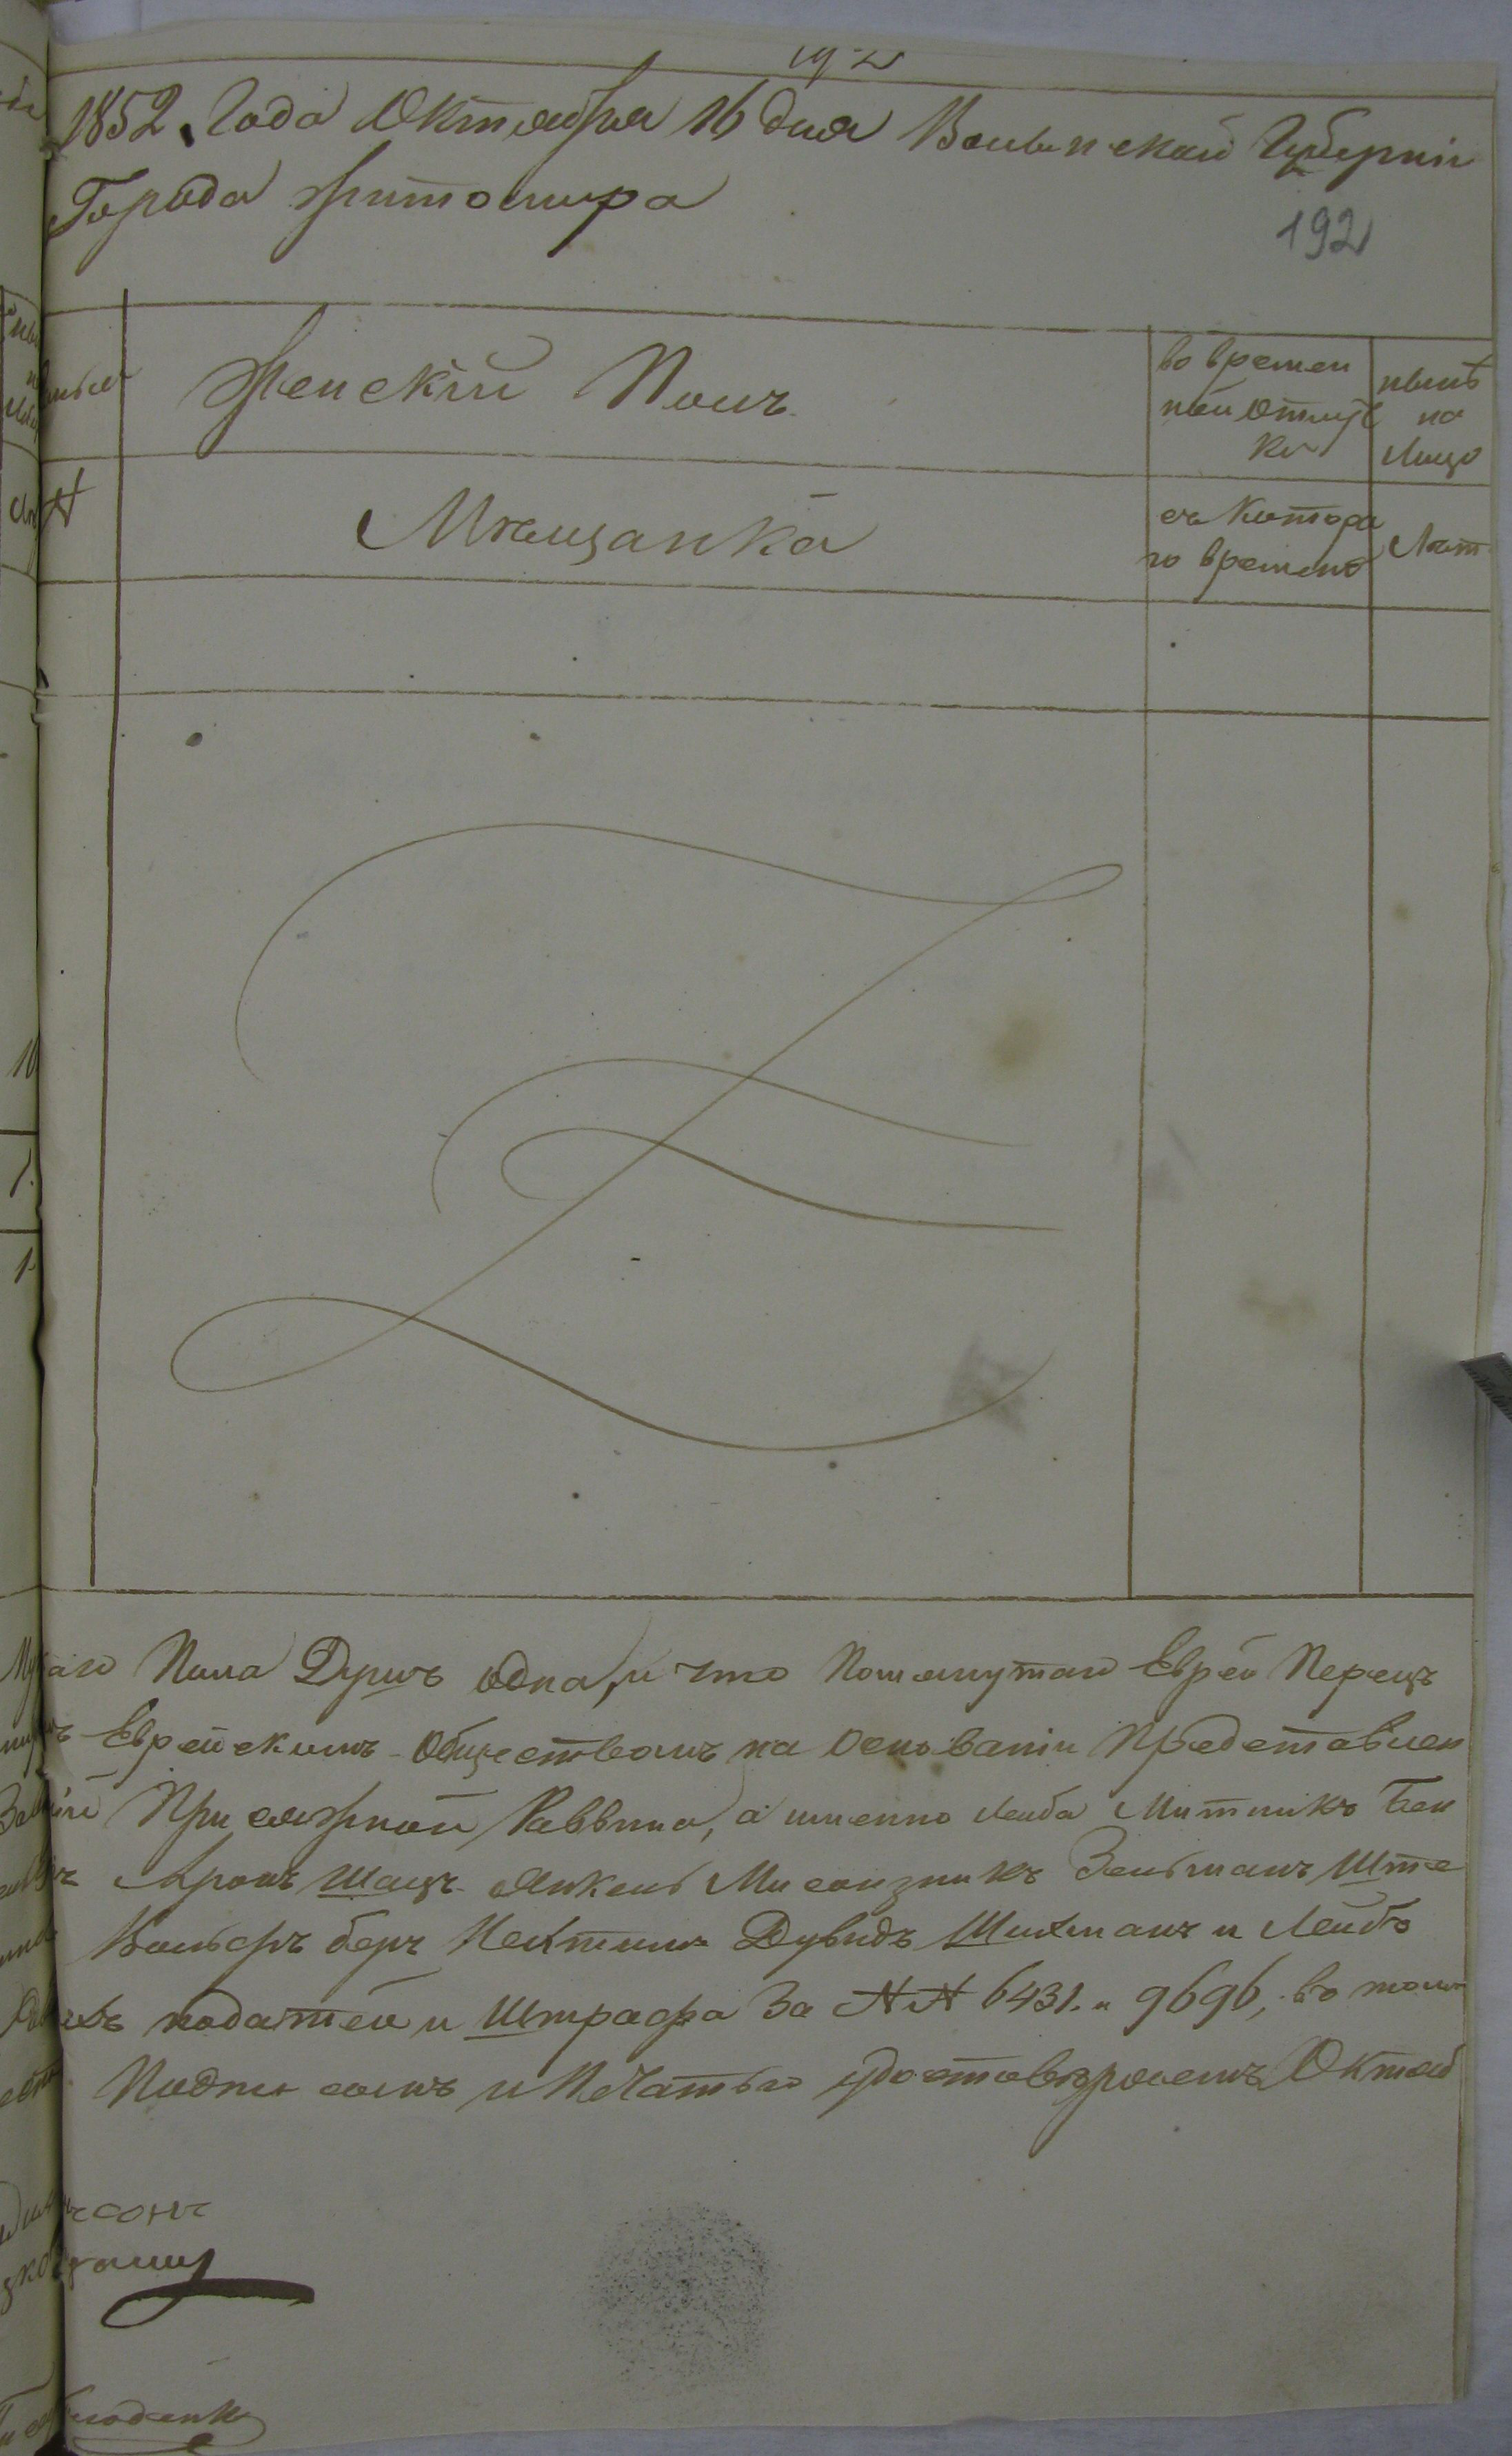 192
1852. Года Октября 16 дня Волынской Губерніи
Города Житомира
192
Женскій Полъ
во времен
ной отлуч
ки
нынѣ
на
лицо
№
Мѣщанка
съ котора
го времени
Лѣт
Пола Душъ одна, и что помянутаго Еврея Перецъ
Еврейскимъ Обществомъ на основаніи представлен
присяжной Раввина, а именно Лейба Митникъ Бен
Аронъ Шацъ Янкель Зельманъ Ште
Вольфъ Беръ Дувидъ Шихманъ и Лейбъ
податей и Штрафа за №№ 6431. и 9696, въ томъ
Подписомъ и Печатью удостовѣряемъ Октяб